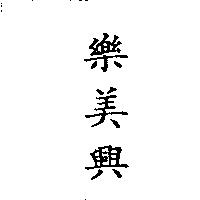 樂美興